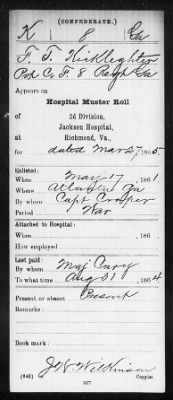 (CONFEDERATE.)
K 8 Ga
F. T. Nickleghter
Pvt Co F. 8 Regt Ga
Appears on
Hospital Muster Roll
of
2d Division,
Jackson Hospital,
at
Richmond, Va.,
for dated Mar 27, 1865
Enlisted:
When May 17, 1861
Where Atlanta Ga
By whom Capt Cooper
Period War
Attached to Hospital:
When , 186
How employed
Last paid:
By whom Maj Cary
To what time Aug 31, 1864
Present or absent Present
Remarks:
Book mark:
J W Wilkinson
(645) Copyist.